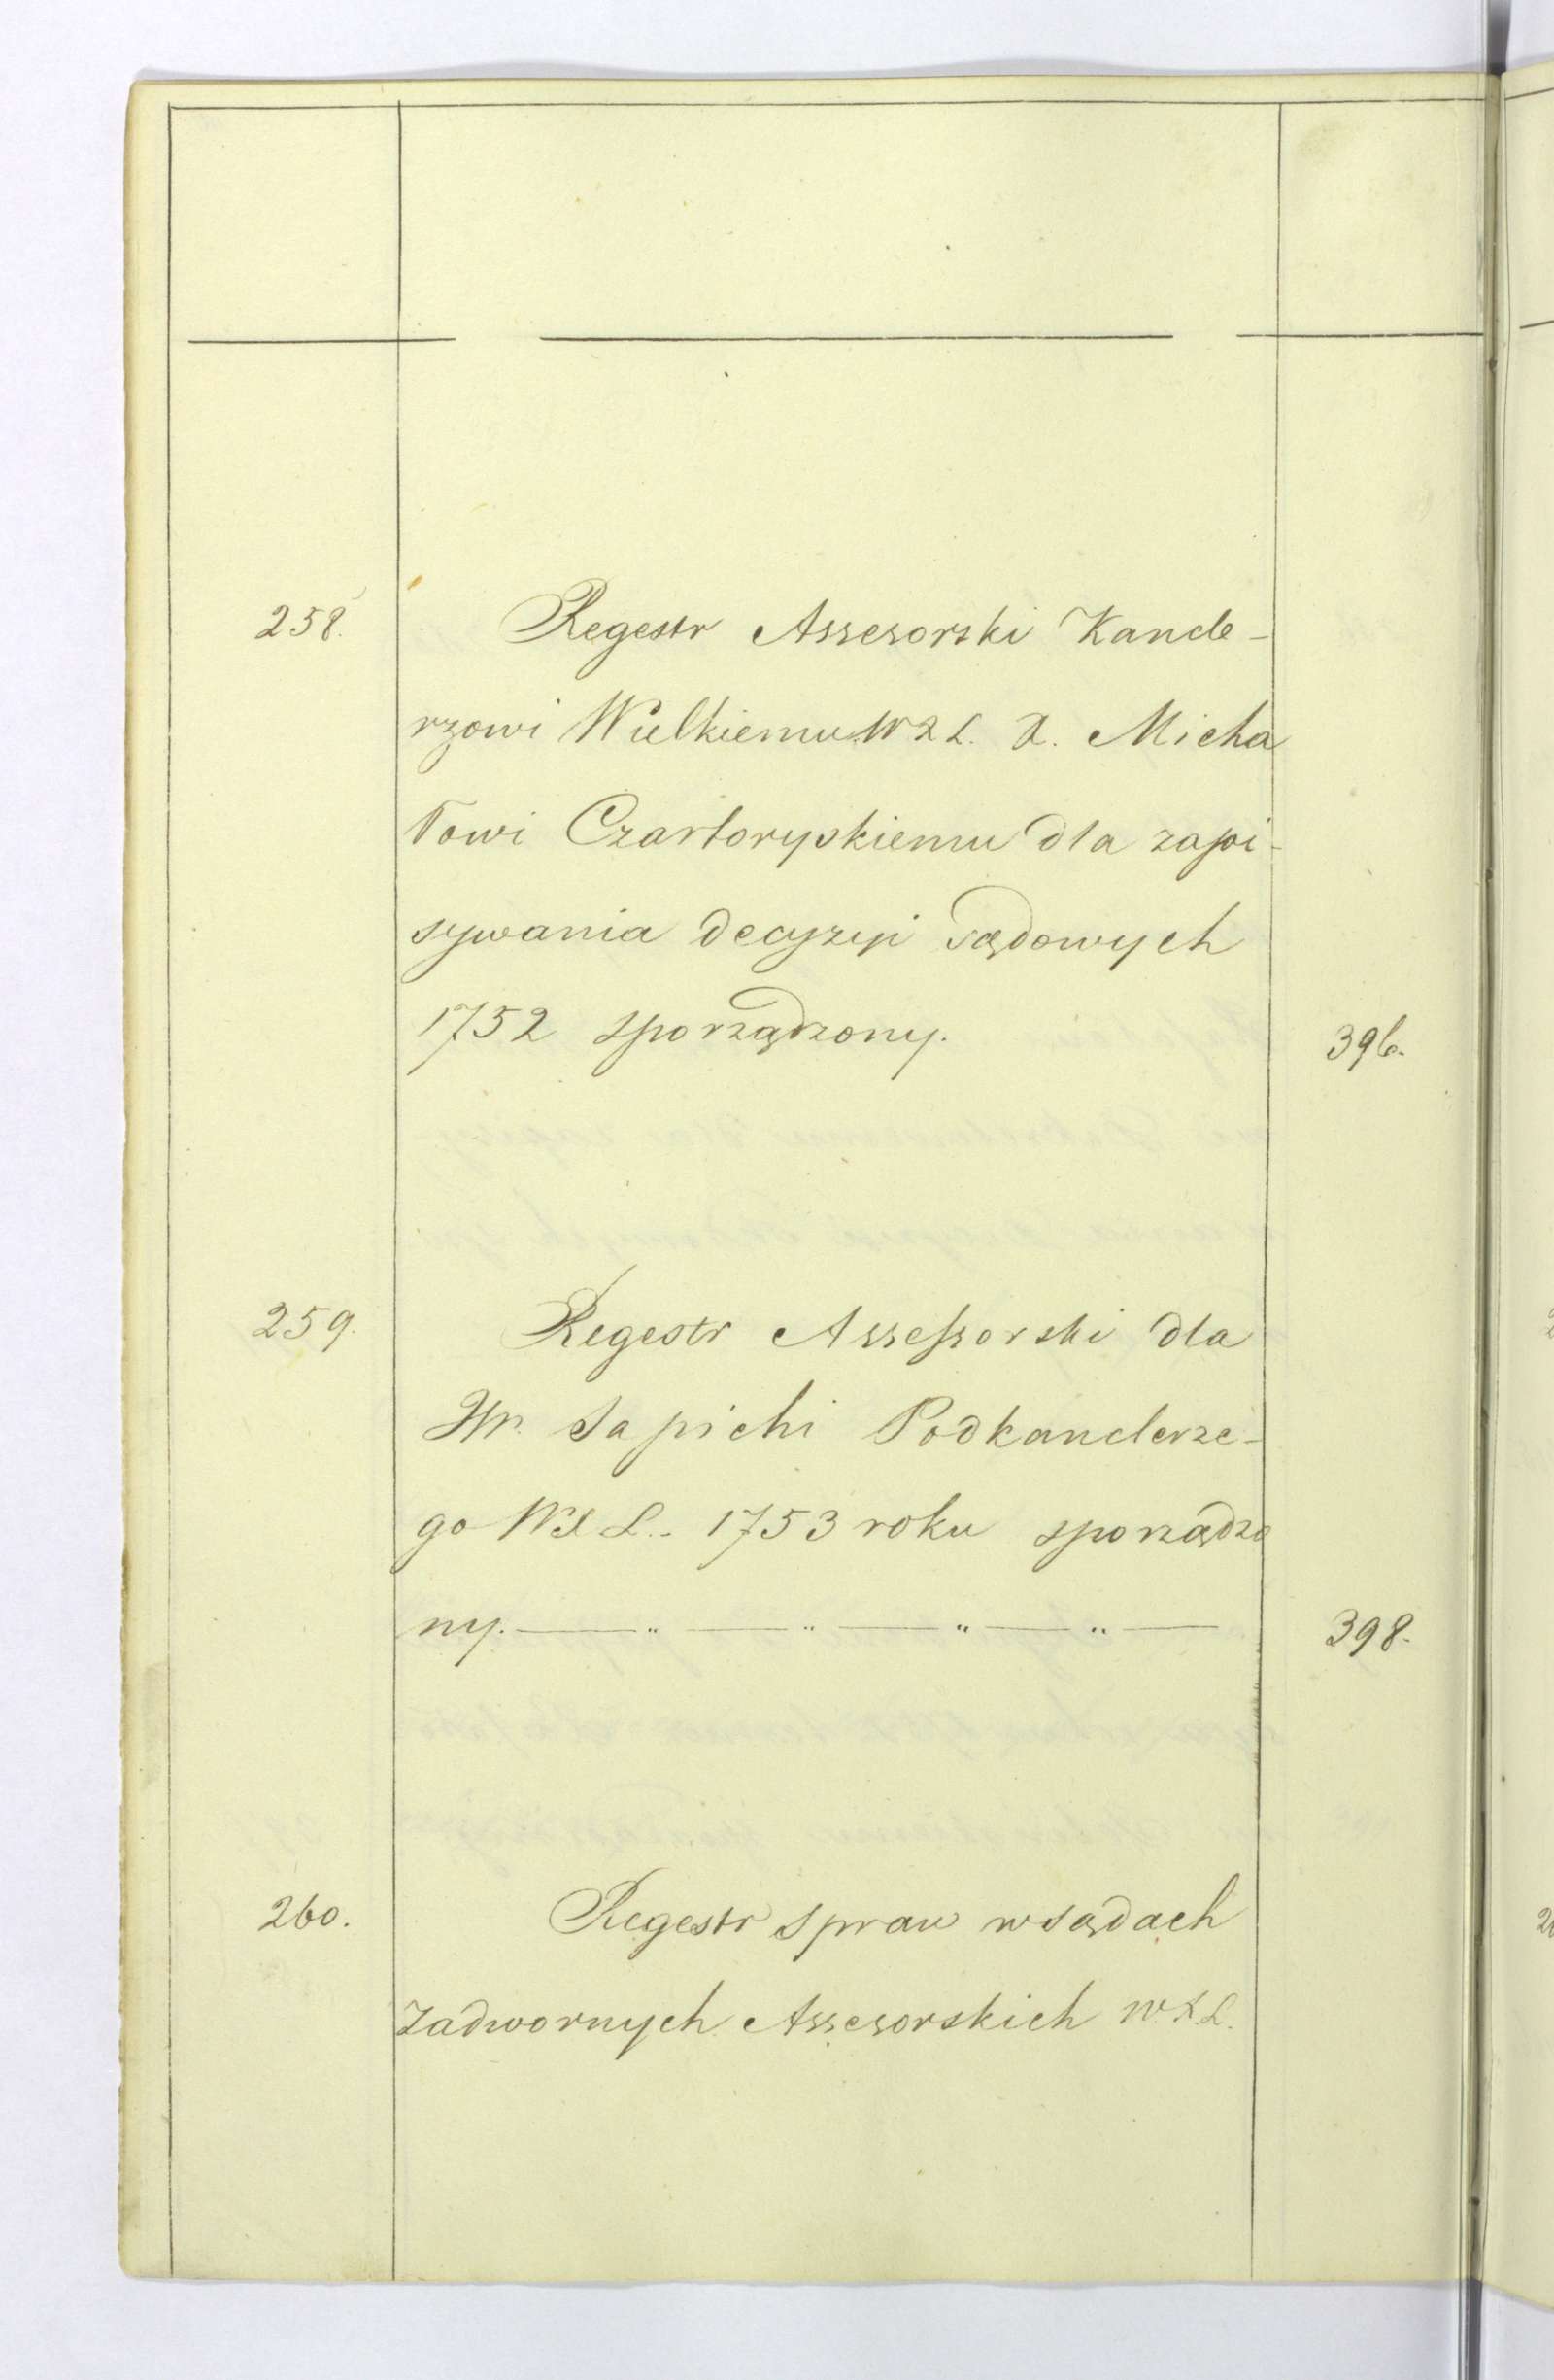 258. Regestr Assesorski Kancle-
rzowi Wielkiemu W X L. X. Micha
łowi Czartoryskiemu dla zapi-
sywania decyzyi sądowych
1752 sporządzony. 396.
259. Regestr Assessorski dla
JW. Sapiehi Podkanclerze-
go W X L. 1753 roku sporządzo
ny. — „ — „ — „ — „ — 398.
260. Regestr spraw w sądach
Zadwornych Assesorskich W. X. L.